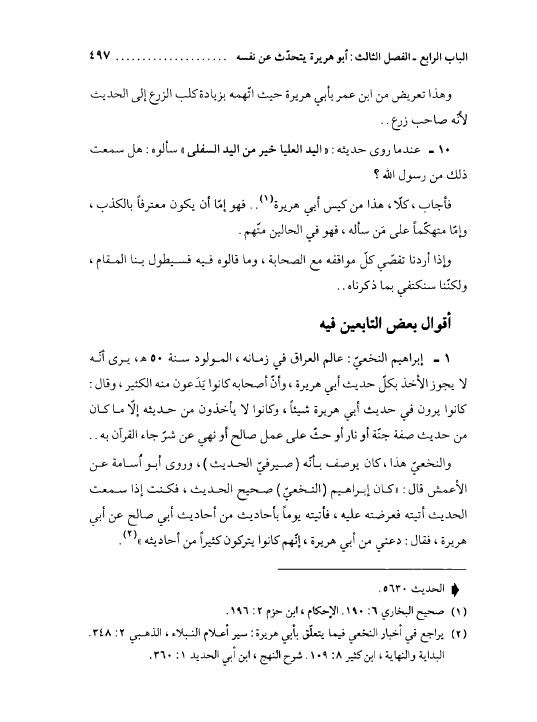 الباب الرابع ـ الفصل الثالث : أبو هريرة يتحدّث عن نفسه ..................... ٤٩٧
وهذا تعريض من ابن عمر بأبي هريرة حيث اتّهمه بزيادة كلب الزرع إلى الحديث
لأنّه صاحب زرع . .
١٠ ـ عندما روى حديثه : « اليد العليا خير من اليد السفلى » سألوه : هل سمعت
ذلك من رسول الله ؟
فأجاب ، كلّا ، هذا من كيس أبي هريرة(١) . . فهو إمّا أن يكون معترفاً بالكذب ،
وإمّا متهكّماً على مَن سأله ، فهو في الحالين متّهم .
وإذا أردنا تقصّي كلّ مواقفه مع الصحابة ، وما قالوه فيه فسيطول بنا المقام ،
ولكنّنا سنكتفي بما ذكرناه . .
أقوال بعض التابعين فيه
١ ـ إبراهيم النخعيّ : عالم العراق في زمانه ، المولود سنة ٥٠ هـ ، يرى أنّه
لا يجوز الأخذ بكلّ حديث أبي هريرة ، وأنّ أصحابه كانوا يَدَعون منه الكثير ، وقال :
كانوا يرون في حديث أبي هريرة شيئاً ، وكانوا لا يأخذون من حديثه إلّا ما كان
من حديث صفة جنّة أو نار أو حثّ على عمل صالح أو نهي عن شرّ جاء القرآن به . .
والنخعيّ هذا ، كان يوصف بأنّه ( صيرفيّ الحديث ) ، وروى أبو أسامة عن
الأعمش قال : « كان إبراهيم (النخعيّ) صحيح الحديث ، فكنت إذا سمعت
الحديث أتيته فعرضته عليه ، فأتيته يوماً بأحاديث من أحاديث أبي صالح عن أبي
هريرة ، فقال : دعني من أبي هريرة ، إنّهم كانوا يتركون كثيراً من أحاديثه »(٢) .
الحديث ٥٦٣٠.
(١) صحيح البخاري ٦ : ١٩٠. الإحكام ، ابن حزم ٢ : ١٩٦.
(٢) يراجع في أخبار النخعي فيما يتعلّق بأبي هريرة : سير أعلام النبلاء ، الذهبي ٢ : ٣٤٨.
البداية والنهاية ، ابن كثير ٨ : ١٠٩. شرح النهج ، ابن أبي الحديد ١ : ٣٦٠.